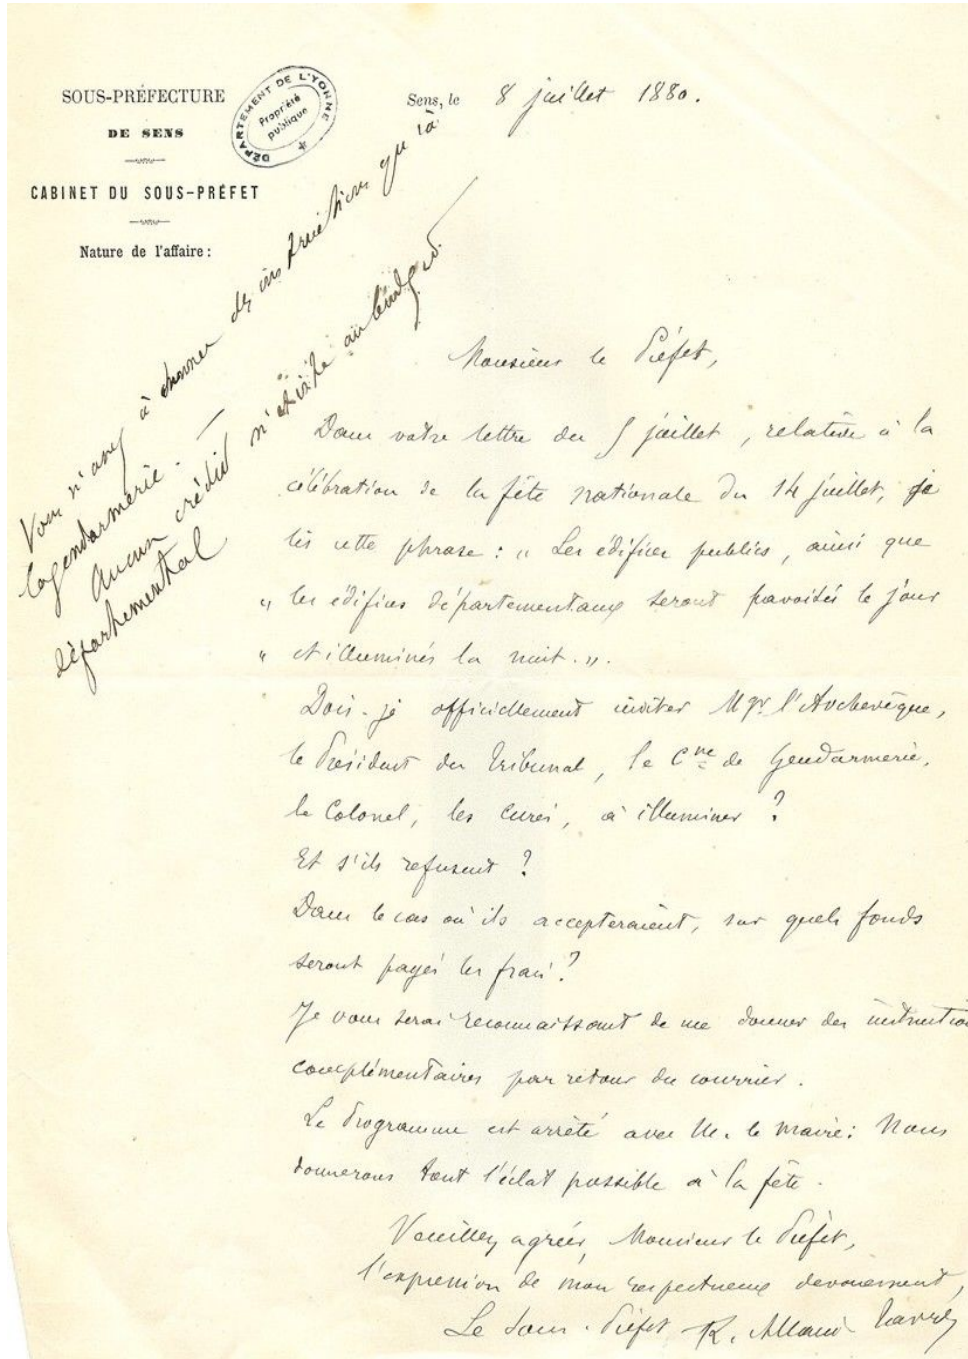 SOUS-PRÉFECTURE
DE SENS
CABINET DU SOUS-PRÉFET
Nature de l'affaire :
DÉPARTEMENT DE L'YONNE
Propriété
publique
Sens, le 8 juillet 1880.
Vous n'avez à donner des instructions qu'à
la gendarmerie. —
Aucun crédit n'existe au budget
départemental
Monsieur le Préfet,
Dans votre lettre du 5 juillet, relative à la
célébration de la fête nationale du 14 juillet, je
lis cette phrase : „ Les édifices publics, ainsi que
„ les édifices départementaux seront pavoisés le jour
„ et illuminés la nuit. „.
Dois-je officiellement inviter Mgr l'Archevêque,
le Président du Tribunal, le Cne de Gendarmerie,
le Colonel, les curés, à illuminer ?
Et s'ils refusent ?
Dans le cas où ils accepteraient, sur quels fonds
seront payés les frais ?
Je vous serai reconnaissant de me donner des instructions
complémentaires par retour du courrier.
Le Programme est arrêté avec M. le maire : Nous
donnerons tout l'éclat possible à la fête.
Veuillez agréer, Monsieur le Préfet,
l'expression de mon respectueux dévouement,
Le Sous-Préfet R.